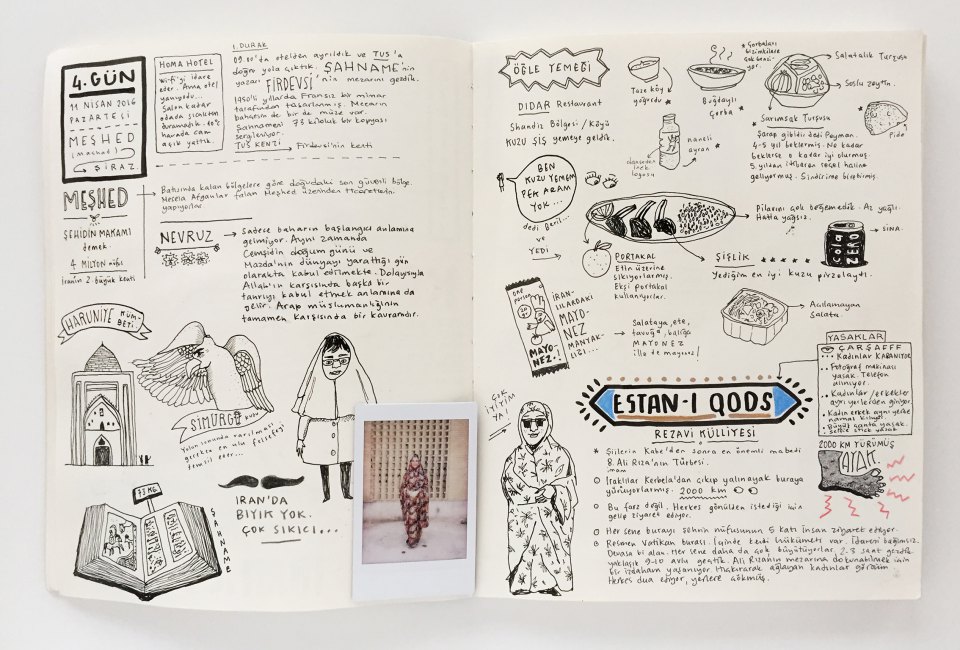 4. GÜN
11 NİSAN 2016
PAZARTESİ
MEŞHED
(Mashad)
ŞİRAZ
HOMA HOTEL
Wi-fi'yi idare
eder. Ama otel
yanıyordu.
Salon kadar
odada sıcaktan
duramadık.
havada cam
açık yattık.
1. DURAK
09.00'da otelden ayrıldık ve TUS'a
doğru yola çıktık. ŞAHNAME'nin
yazarı FİRDEVSİ'nin mezarını gezdik.
1950'li yıllarda Fransız bir mimar
tarafından tasarlanmış. Mezarın
bahçesinde bir de müze var.
Şahnamesi 73 kiloluk bir kopyası
sergileniyor.
TUS KENTİ → Firdevsi'nin kenti
MEŞHED
ŞEHİDİN MAKAMI
demek
4 MİLYON nüfus
İranın 2. büyük kenti
Batısında kalan bölgelere göre doğudaki son güvenli bölge.
Mesela Afganlar falan Meşhed üzerinden ticaretlerini
yapıyorlar.
NEVRUZ
Sadece baharın başlangıcı anlamına
gelmiyor. Aynı zamanda
Cemşidin doğum günü ve
Mazda'nın dünyayı yarattığı gün
olarakta kabul edilmekte. Dolayısıyla
Allah'ın karşısında başka bir
tanrıyı kabul etmek anlamına da
gelir. Arap müslümanlığının
tamamen karşısında bir kavramdır.
HARUNİYE KÜM-
BETİ.
SİMURG kuşu
Yolun sonunda varılması
gereken en ulu felsefeyi
temsil eder...
73 KG
ŞAHNAME
İRAN'DA
BIYIK YOK.
ÇOK SIKICI...
ÖĞLE YEMEĞİ
DIDAR Restaurant
Shandiz Bölgesi / Köyü
KUZU ŞİŞ yemeye geldik.
BEN
KUZU YEMEM
PEK ARAM
YOK...
dedi Beril...
ve
YEDİ
Taze köy
yoğurdu
* Çorbaları
bizimkilere
çok benzi-
yor.
Buğdaylı
Çorba
Salatalık Turşusu
Soslu zeytin.
Pide
naneli
ayran
danone'nin
inek
logosu
Sarımsak Turşusu
Şarap gibidi dedi Peyman.
4-5 yıl beklermiş. Ne kadar
beklerse o kadar iyi olurmuş.
5. yıldan itibaren reçel haline
geliyormuş. Sindirime birebirmiş
Pilavını çok beğenmedik. Az yağlı.
Hatta yağsız.
SINA.
COLA ZERO
PORTAKAL
Etin üzerine
sıkıyorlarmış.
Ekşi portakal
kullanıyorlar.
ŞİŞLİK
Yediğim en iyi kuzu pirzolaydı.
ONE
person
MAYO-
NEZ.!
İRAN-
LILARDAKİ
MAYO-
NEZ
MANTAK-
LIĞI...
Salataya, ete,
tavuğa, balığa
MAYONEZ
ille de mayonez!
Açılamayan
Salata.
ESTAN-I QODS
REZAVİ KÜLLİYESİ
YASAKLAR
ÇARŞAFFF
Kadınlar KAPANIYOR
Fotoğraf makinası
yasak. Telefon
alınıyor.
Kadınlar / erkekler
ayrı yerlerden giriyor.
Kadın erkek aynı yerde
namaz kılıyor
Büyük çanta yasak.
Selfie stick yasak
ÇOK
İYİYİM
YA!
2000 KM YÜRÜMÜŞ
AYAK.
* Şiilerin Kabe'den sonra en önemli mabedi
8. imam Ali Rıza'nın Türbesi.
Iraklılar Kerbela'dan çıkıp yalınayak buraya
yürüyorlarmış. 2000 km
Bu farz değil. Herkes gönülden istediği için
gelip ziyaret ediyor.
Her sene burayı şehrin nüfusunun 5 katı insan ziyaret ediyor.
Resmen Vatikan burası. İçinde kendi hükümeti var. İdaresi bağımsız.
Devasa bi alan. Her sene daha da çok büyütüyorlar. 2-3 saat gezdik.
yaklaşık 9-10 avlu geçtik. Ali Rıza'nın mezarına dokunabilmek için
bir izdiham yaşanıyor. Hıçkırarak ağlayan kadınlar gördüm.
Herkes dua ediyor, yerlere çökmüş.